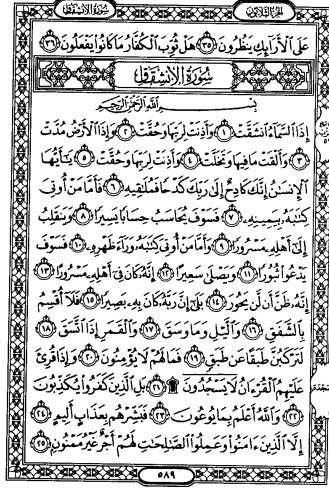 الجزء الثلاثون
سورة الانشقاق
عَلَى ٱلْأَرَآئِكِ يَنظُرُونَ ٣٥ هَلْ ثُوِّبَ ٱلْكُفَّارُ مَا كَانُوا۟ يَفْعَلُونَ ٣٦
سورة الانشقاق
بِسْمِ ٱللَّهِ ٱلرَّحْمَٰنِ ٱلرَّحِيمِ
إِذَا ٱلسَّمَآءُ ٱنشَقَّتْ ١ وَأَذِنَتْ لِرَبِّهَا وَحُقَّتْ ٢ وَإِذَا ٱلْأَرْضُ مُدَّتْ
٣ وَأَلْقَتْ مَا فِيهَا وَتَخَلَّتْ ٤ وَأَذِنَتْ لِرَبِّهَا وَحُقَّتْ ٥ يَٰٓأَيُّهَا
ٱلْإِنسَٰنُ إِنَّكَ كَادِحٌ إِلَىٰ رَبِّكَ كَدْحًا فَمُلَٰقِيهِ ٦ فَأَمَّا مَنْ أُوتِىَ
كِتَٰبَهُۥ بِيَمِينِهِۦ ٧ فَسَوْفَ يُحَاسَبُ حِسَابًا يَسِيرًا ٨ وَيَنقَلِبُ
إِلَىٰٓ أَهْلِهِۦ مَسْرُورًا ٩ وَأَمَّا مَنْ أُوتِىَ كِتَٰبَهُۥ وَرَآءَ ظَهْرِهِۦ ١٠ فَسَوْفَ
يَدْعُوا۟ ثُبُورًا ١١ وَيَصْلَىٰ سَعِيرًا ١٢ إِنَّهُۥ كَانَ فِىٓ أَهْلِهِۦ مَسْرُورًا ١٣
إِنَّهُۥ ظَنَّ أَن لَّن يَحُورَ ١٤ بَلَىٰٓ إِنَّ رَبَّهُۥ كَانَ بِهِۦ بَصِيرًا ١٥ فَلَآ أُقْسِمُ
بِٱلشَّفَقِ ١٦ وَٱلَّيْلِ وَمَا وَسَقَ ١٧ وَٱلْقَمَرِ إِذَا ٱتَّسَقَ ١٨
لَتَرْكَبُنَّ طَبَقًا عَن طَبَقٍ ١٩ فَمَا لَهُمْ لَا يُؤْمِنُونَ ٢٠ وَإِذَا قُرِئَ
عَلَيْهِمُ ٱلْقُرْءَانُ لَا يَسْجُدُونَ ۩ ٢١ بَلِ ٱلَّذِينَ كَفَرُوا۟ يُكَذِّبُونَ
٢٢ وَٱللَّهُ أَعْلَمُ بِمَا يُوعُونَ ٢٣ فَبَشِّرْهُم بِعَذَابٍ أَلِيمٍ ٢٤
إِلَّا ٱلَّذِينَ ءَامَنُوا۟ وَعَمِلُوا۟ ٱلصَّٰلِحَٰتِ لَهُمْ أَجْرٌ غَيْرُ مَمْنُونٍۭ ٢٥
٥٨٩